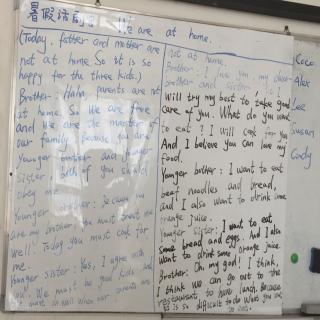 暑假话剧 We are at home.
(Today, father and mother are
not at home. So it is so
happy for the three kids.)
Brother: Haha, parents are not
at home. So we are free
and we are the master of
our family. Because you are
younger brother and younger
sister, both of you should
obey me.
Younger brother: Because you
are my brother. You must treat me
well. Today you must cook for
me.
Younger sister: Yes, I agree with
you. We must be good kids and
we must do well when our parents are
not at home.
Brother: I love you, my dear
brother and sister. So I
will try my best to take good
care of you. What do you want
to eat? I will cook for you
And I believe you can love my
food.
Younger brother: I want to eat
beef noodles and bread,
and I also want to drink some
orange juice.
Younger sister: I want to eat
some bread and eggs. And I also
want to drink some orange juice.
Brother: Oh, my god! I think,
I think we can go out to the
restaurant to have lunch, because
it is so difficult to do what you
Coco
Alex
Lee
Susan
Cody